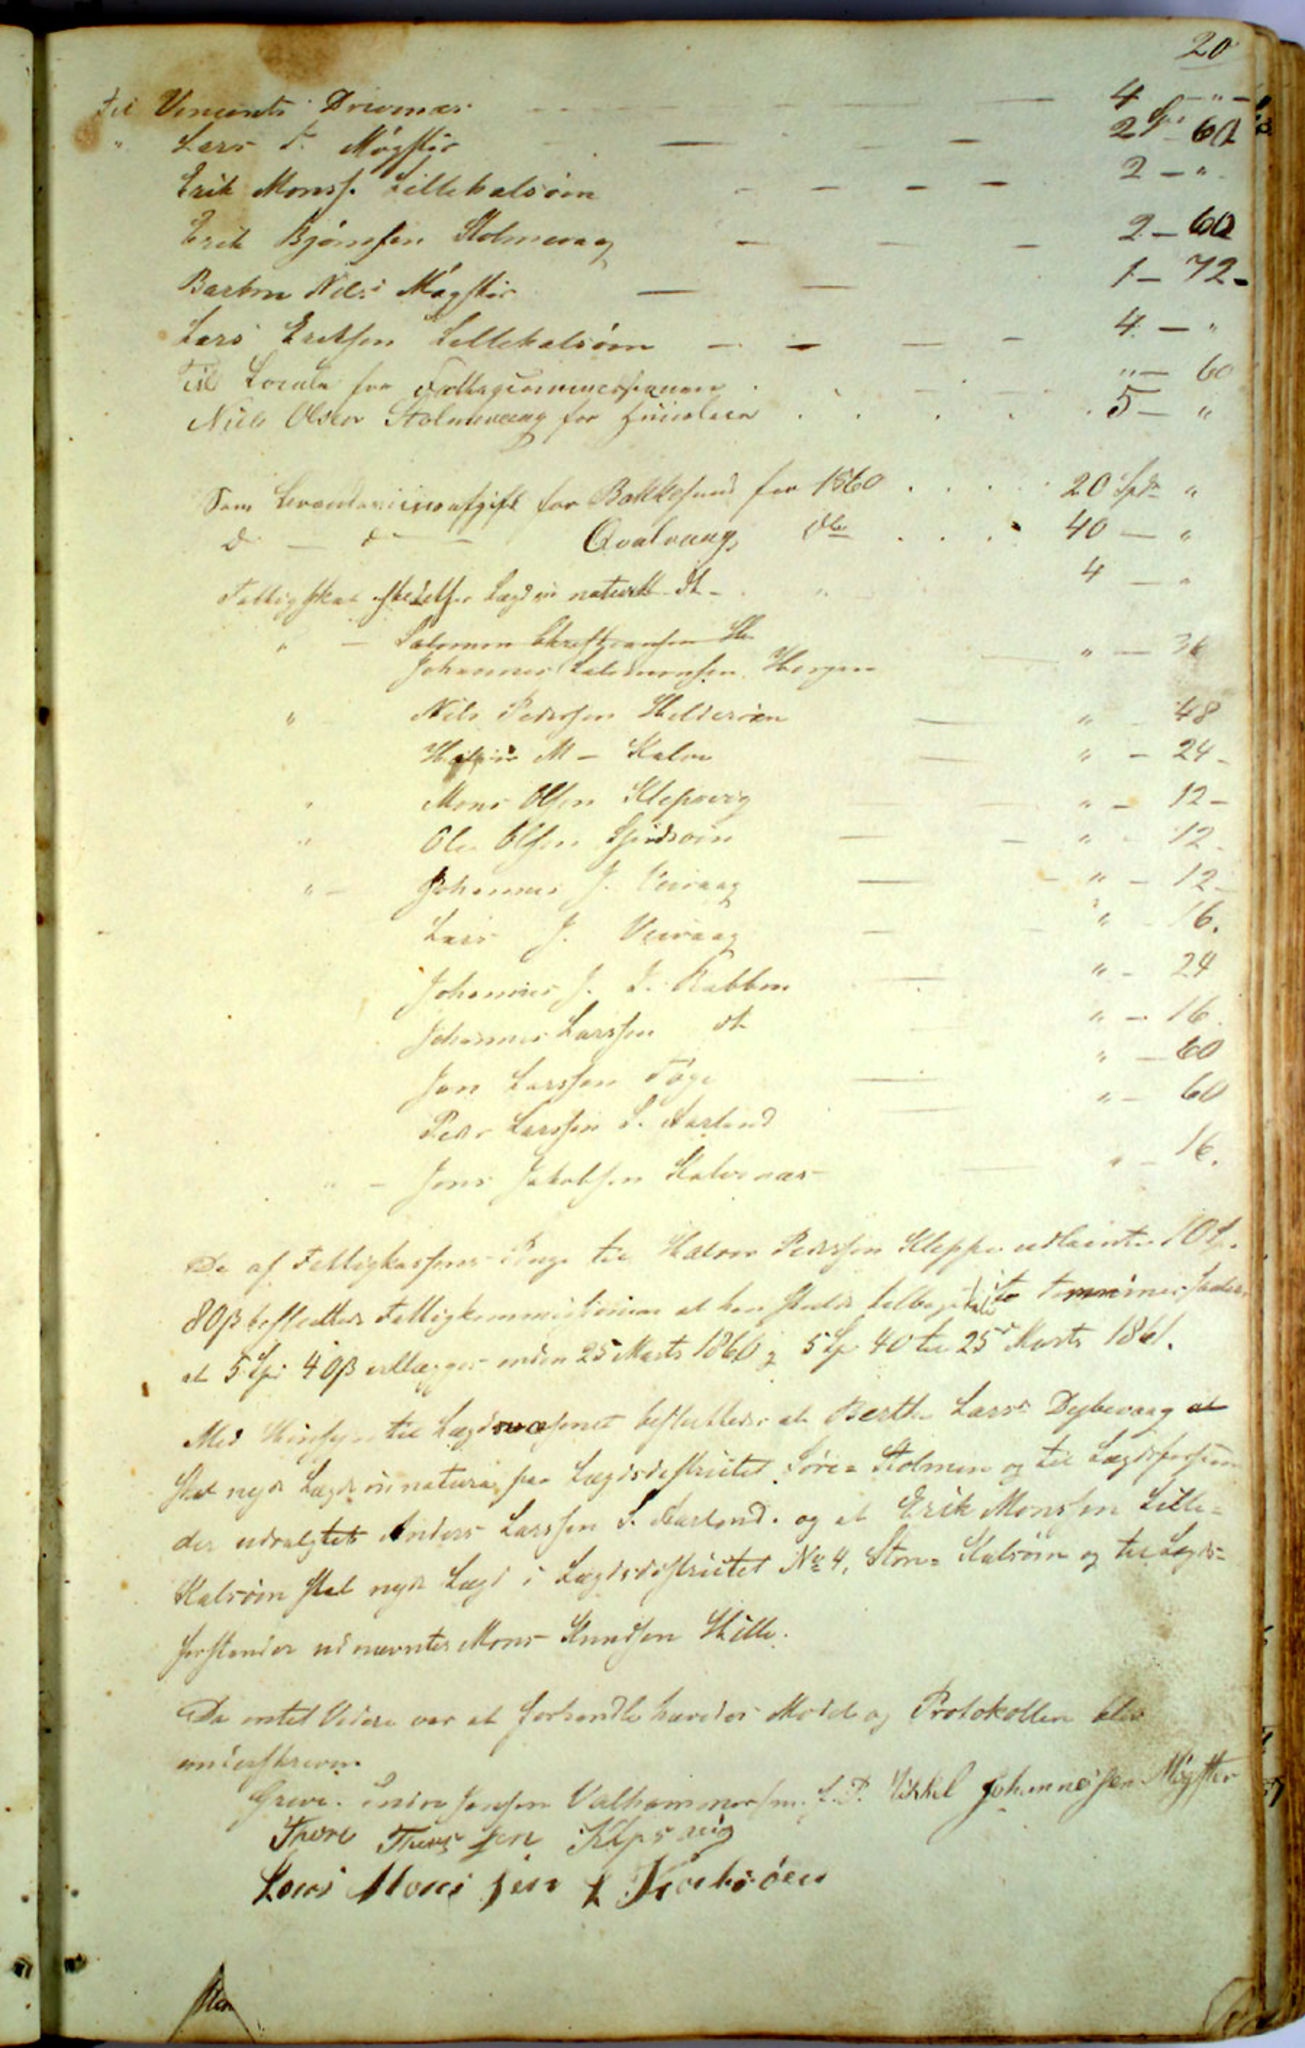 20
Til Vincents Drivenæs 4 - " -
" Lars T. Møgster 2 Sp - 60
Erik Monss. Lillekalsøen 2 - "
Erik Bjørnsen Stolmevaag 2 - 60
Barbro Nils Møgster 1 - 72 -
Lars Eriksen Lillekalsøen 4 - "
Til Locale for " - 60
Nils Olsen Stolmevaag for 5 - "
Som for Bakkesund for 1860 20 Spd "
D - d - Qvalvaag do 40 - "
Fattigskat istedetfor Lægd in natura 4 - "
" - Salomon Christiansen
Johannes Salomonsen Horgen " - 36
" Nils Pedersen Heldersøen " - 48
M - Kalve " - 24 -
" Mons Olsen Klepsvig " - 12 -
" Ole Olsen " - 12 -
" - Johannes J. Veivaag " - 12 -
Lars J. Veivaag " - 16.
Johannes J. S. Rabben " - 24
Johannes Larssen dt " - 16.
Jon Larssen " - 60
Peder Larssen S. Aarland " - 60
" - Jens Jakobsen Kalvenæs " - 16.
De af Fattigkassens Penge til Halvor Pedersen Kleppe udlaante 10 Sp.
80 β besluttede Fattigkommissionen at han skulde tilbagebetale to Terminer saaledes
at 5 Sp 40 β erlægges inden 25 Marts 1860 og 5 Sp 40 til 25 Marts 1861.
Med Hensyn til Lægdsvæsenet besluttedes at Berthe Larsd Dybevaag at
skal nyde Lægd in natura paa Lægdsdistriktet Søre= Stolmen og til Lægdsforstan
der udvalgtes Anders Larssen S. Aarland. og at Erik Monssen Lille=
Kalsøen skal nyde Lægd i Lægdsdistriktet No 4, Store= Kalsøen og til Lægds=
forstander udnævntes Mons Knudsen Hille.
Da intet Videre var at forhandle hævedes Mødet og Protokollen blev
underskreven.
Greve. Endre Jensen Valhammersen. L. P. Mikkel Johannesen Møgster
Thore Thorssen Klepsvig
Lars Monssen L Kalsøen